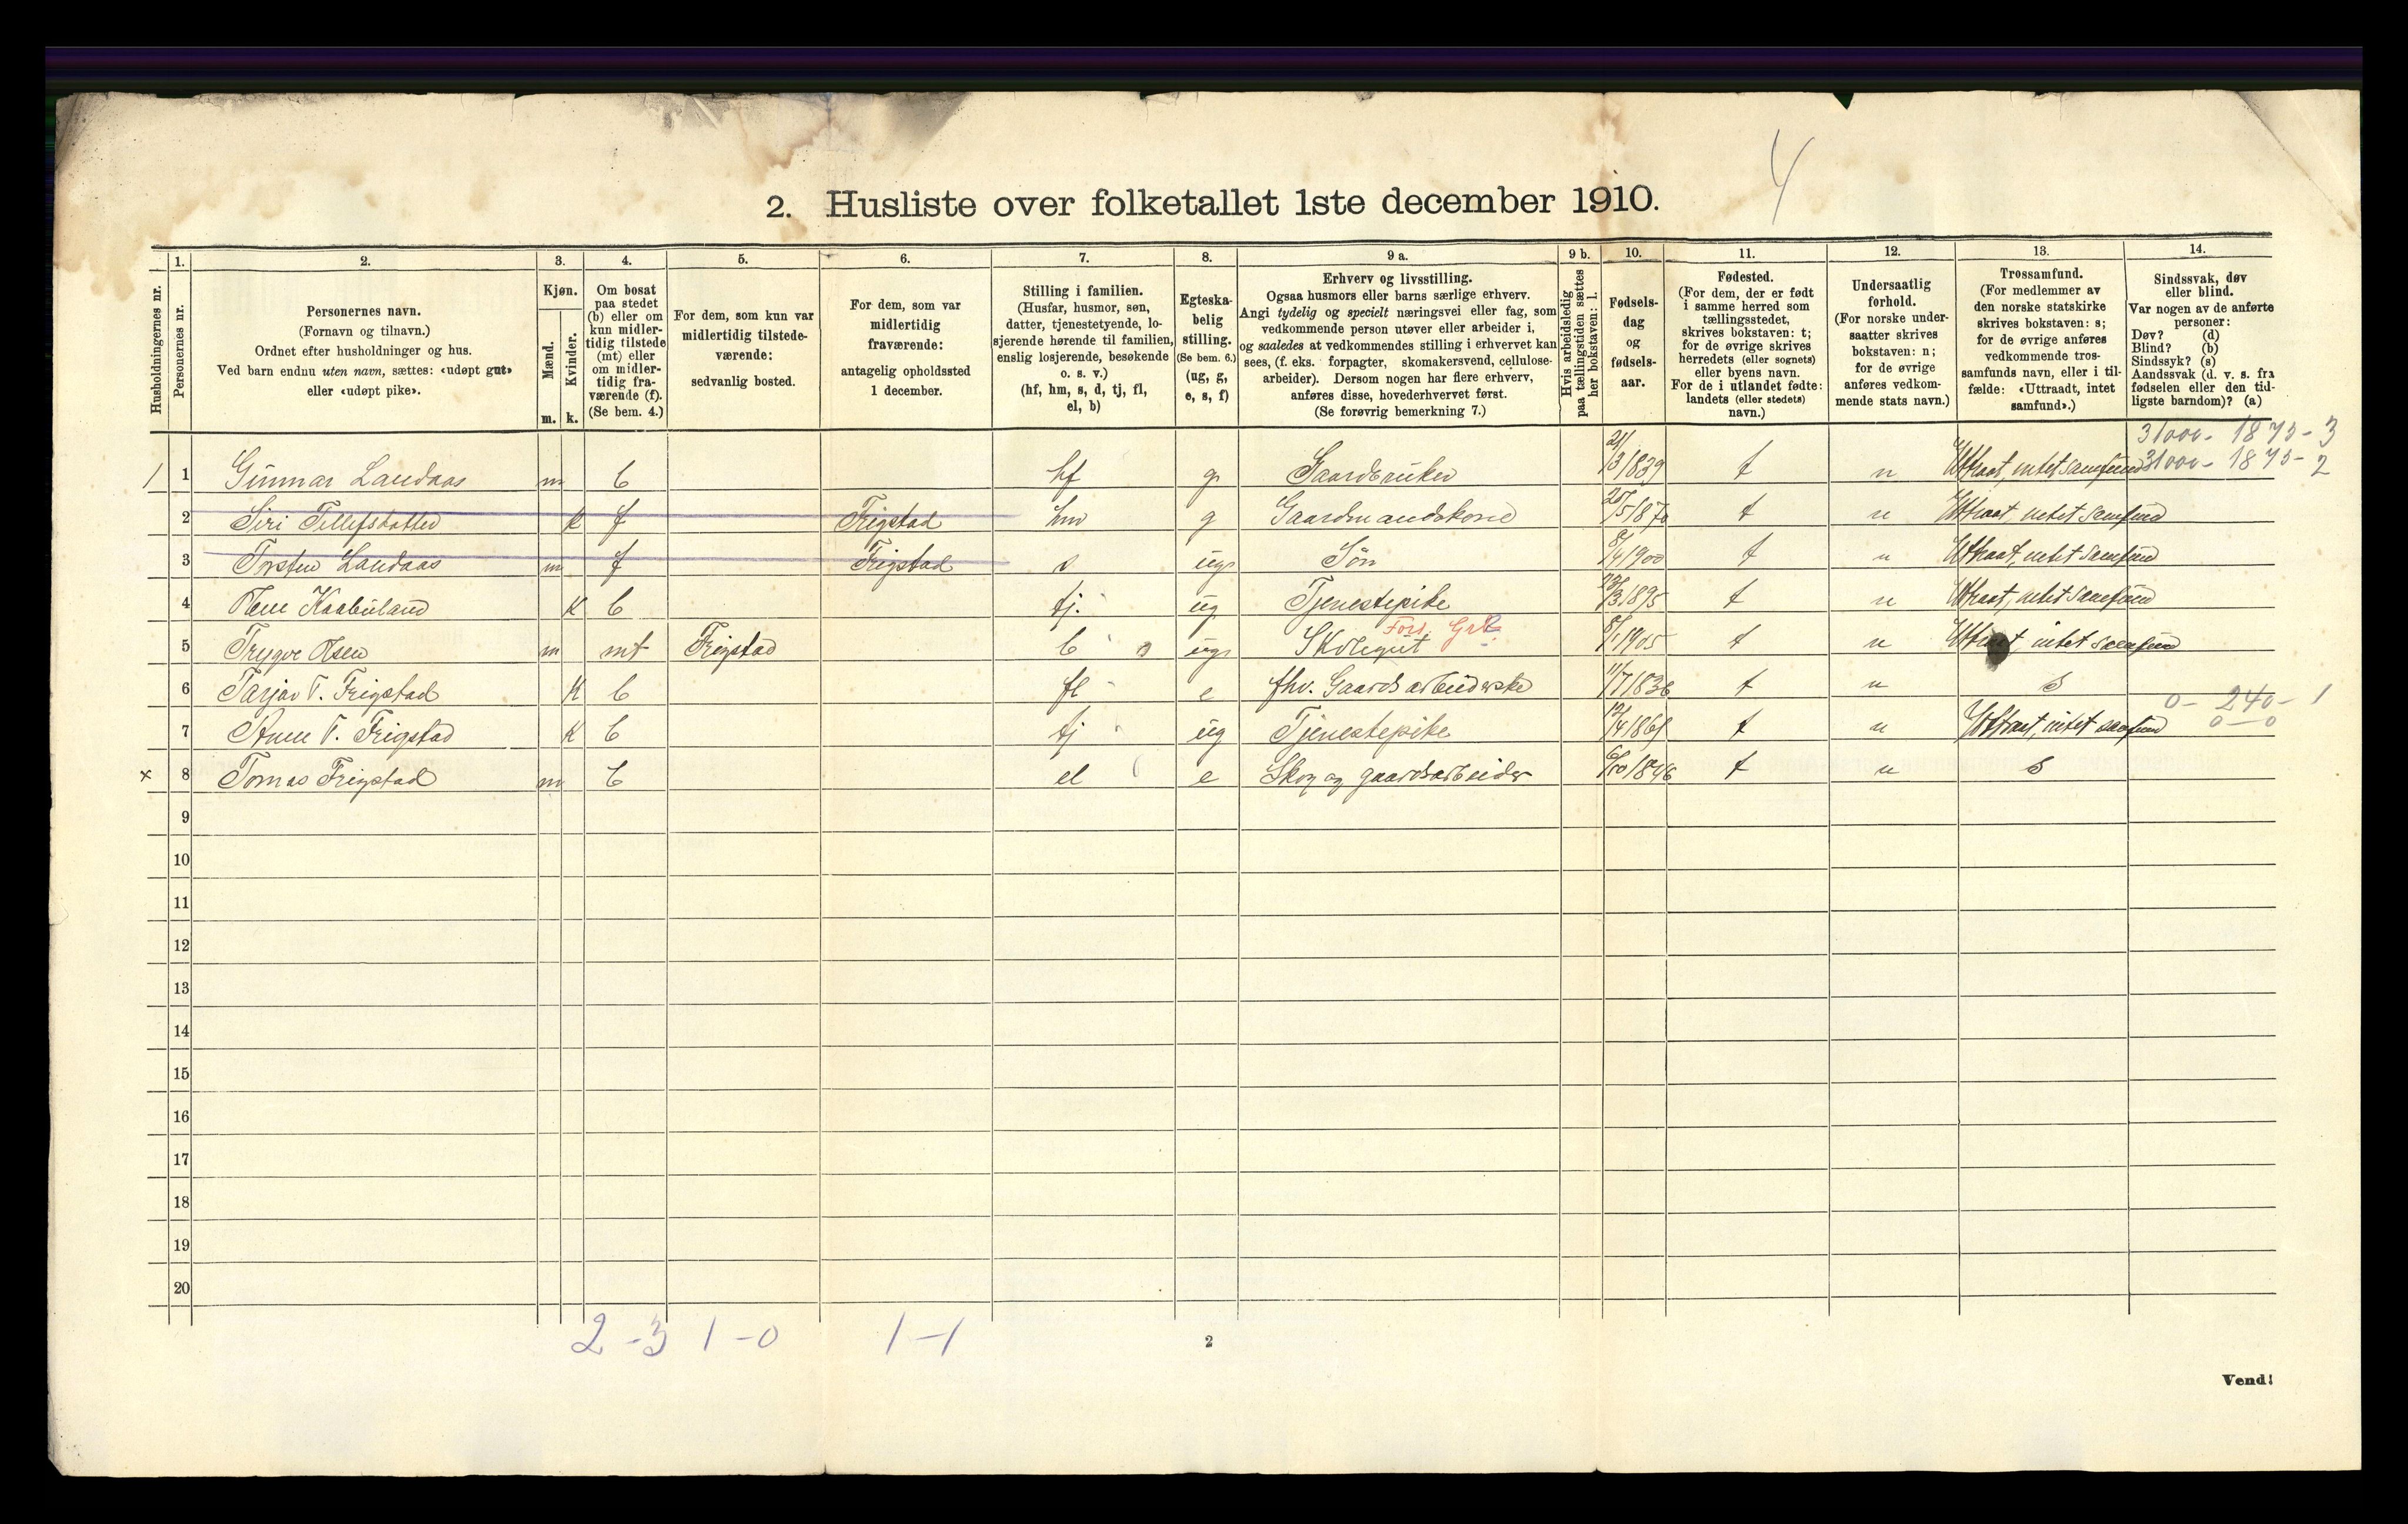 4
2. Husliste over folketallet 1ste december 1910.
Husholdningernes nr.
1.
Personernes nr.
2.
Personernes navn.
(Fornavn og tilnavn.)
Ordnet efter husholdninger og hus.
Ved barn endnu uten navn, sættes: «udøpt gut»
eller «udøpt pike».
3.
Kjøn.
Mænd.
Kvinder.
m. k.
4.
Om bosat
paa stedet
(b) eller om
kun midler-
tidig tilstede
(mt) eller
om midler-
tidig fra-
værende (f).
(Se bem. 4.)
5.
For dem, som kun var
midlertidig tilstede-
værende:
sedvanlig bosted.
6.
For dem, som var
midlertidig
fraværende:
antagelig opholdssted
1 december.
7.
Stilling i familien.
(Husfar, husmor, søn,
datter, tjenestetyende, lo-
sjerende hørende til familien,
enslig losjerende, besøkende
o. s. v.)
(hf, hm, s, d, tj, fl,
el, b)
8.
Egteska-
belig
stilling.
(Se bem. 6.)
(ug, g,
e, s, f)
9 a.
Erhverv og livsstilling.
Ogsaa husmors eller barns særlige erhverv.
Angi tydelig og specielt næringsvei eller fag, som
vedkommende person utøver eller arbeider i,
og saaledes at vedkommendes stilling i erhvervet kan
sees, (f. eks. forpagter, skomakersvend, cellulose-
arbeider). Dersom nogen har flere erhverv,
anføres disse, hovederhvervet først.
(Se forøvrig bemerkning 7.)
9 b.
Hvis arbeidsledig
paa tællingstiden sættes
her bokstaven: l.
10.
Fødsels-
dag
og
fødsels-
aar.
11.
Fødested.
(For dem, der er født
i samme herred som
tællingsstedet,
skrives bokstaven: t;
for de øvrige skrives
herredets (eller sognets)
eller byens navn.
For de i utlandet fødte:
landets (eller stedets)
navn.)
12.
Undersaatlig
forhold.
(For norske under-
saatter skrives
bokstaven: n;
for de øvrige
anføres vedkom-
mende stats navn.)
13.
Trossamfund.
(For medlemmer av
den norske statskirke
skrives bokstaven: s;
for de øvrige anføres
vedkommende tros-
samfunds navn, eller i til-
fælde: «Uttraadt, intet
samfund».)
14.
Sindssvak, døv
eller blind.
Var nogen av de anførte
personer:
Døv? (d)
Blind? (b)
Sindssyk? (s)
Aandssvak (d. v. s. fra
fødselen eller den tid-
ligste barndom)? (a)
31000 - 1875 - 3
1 1 Gunnar Landaas m b hf g Gaardbruker 21/3 1839 t n Uttraat, intet samfund 31000 - 1875 - 2
2 Siri Tellefsdatter k f Frigstad hm g Gaardmandskone 25/5 1870 t n Uttraat, intet samfund
3 Torsten Landaas m f Frigstad s ug Søn 8/4 1900 t n Uttraat, intet samfund
4 Kaabuland k b tj. ug Tjenestepike 1895 t n Uttraat, intet samfund
5 Trygve Olsen m mt Frigstad b ug Skolegut 8/1 1905 t n Uttraat, intet samfund
6 Tarjar T. Frigstad k b fl e fhv. Gaardsarbeiderske 11/7 1836 t n s
0 - 240 - 1
7 Anne T. Frigstad k b tj ug Tjenestepike t n Uttraat, intet samfund 0-0
x 8 Tomas Frigstad m b el e Skog og gaardsarbeider 6/10 1846 t n s
9
10
11
12
13
14
15
16
17
18
19
20
2 - 3 1 - 0 1 - 1
2
Vend!